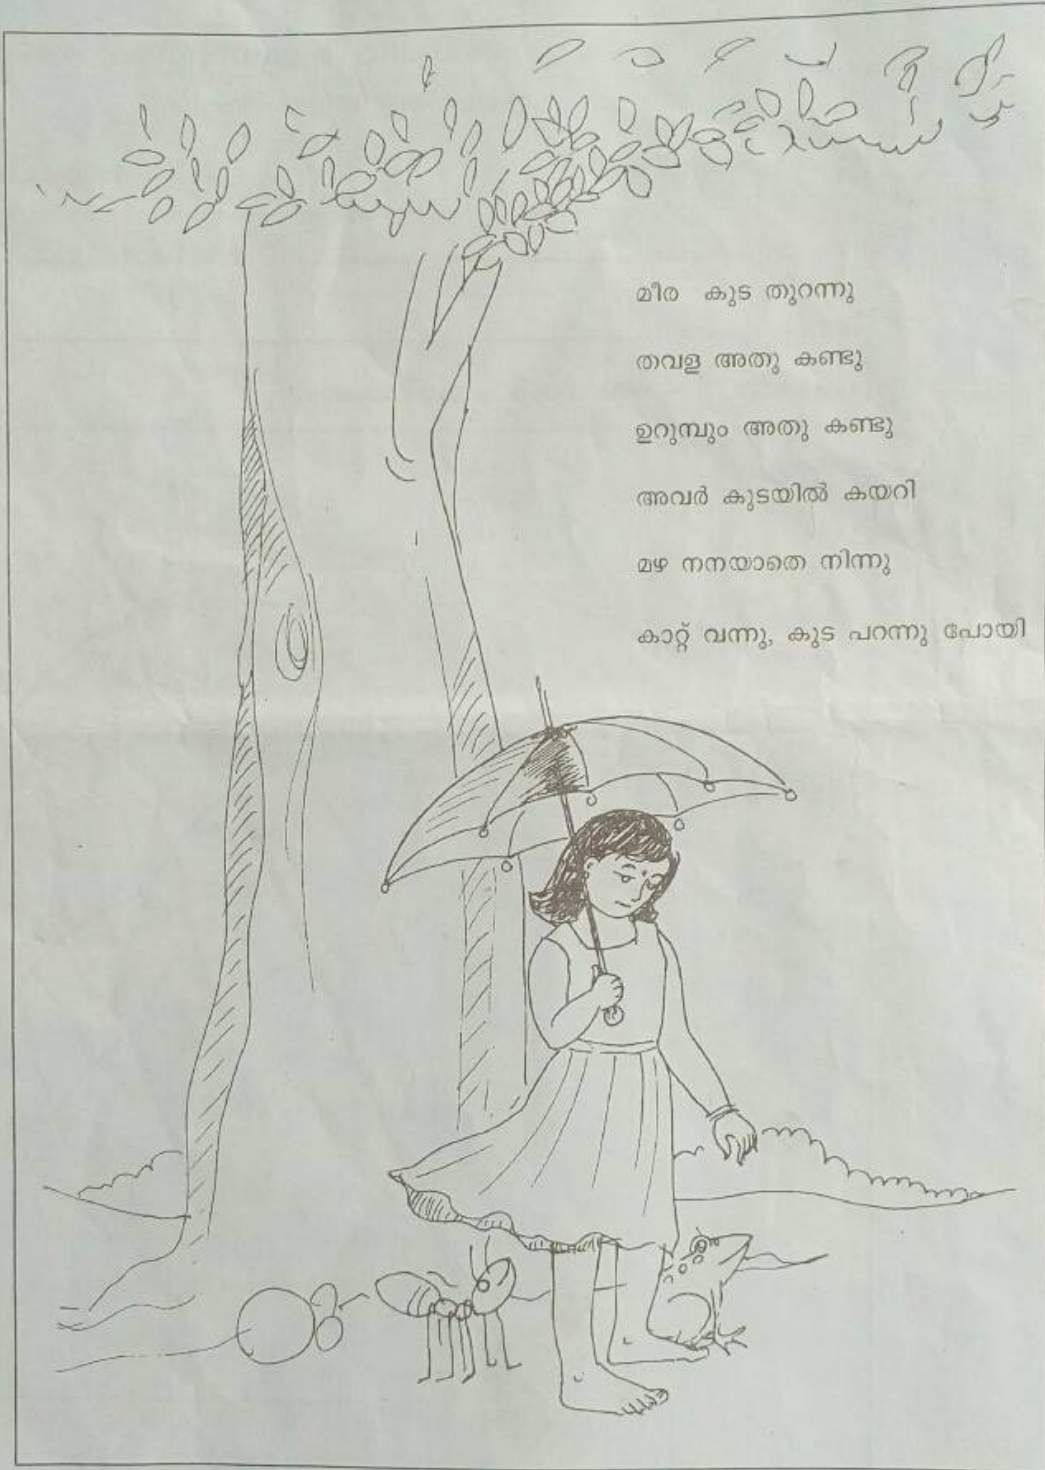 മീര കുട തുറന്നു
തവള അതു കണ്ടു
ഉറുമ്പും അതു കണ്ടു
അവർ കുടയിൽ കയറി
മഴ നനയാതെ നിന്നു
കാറ്റ് വന്നു, കുട പറന്നു പോയി